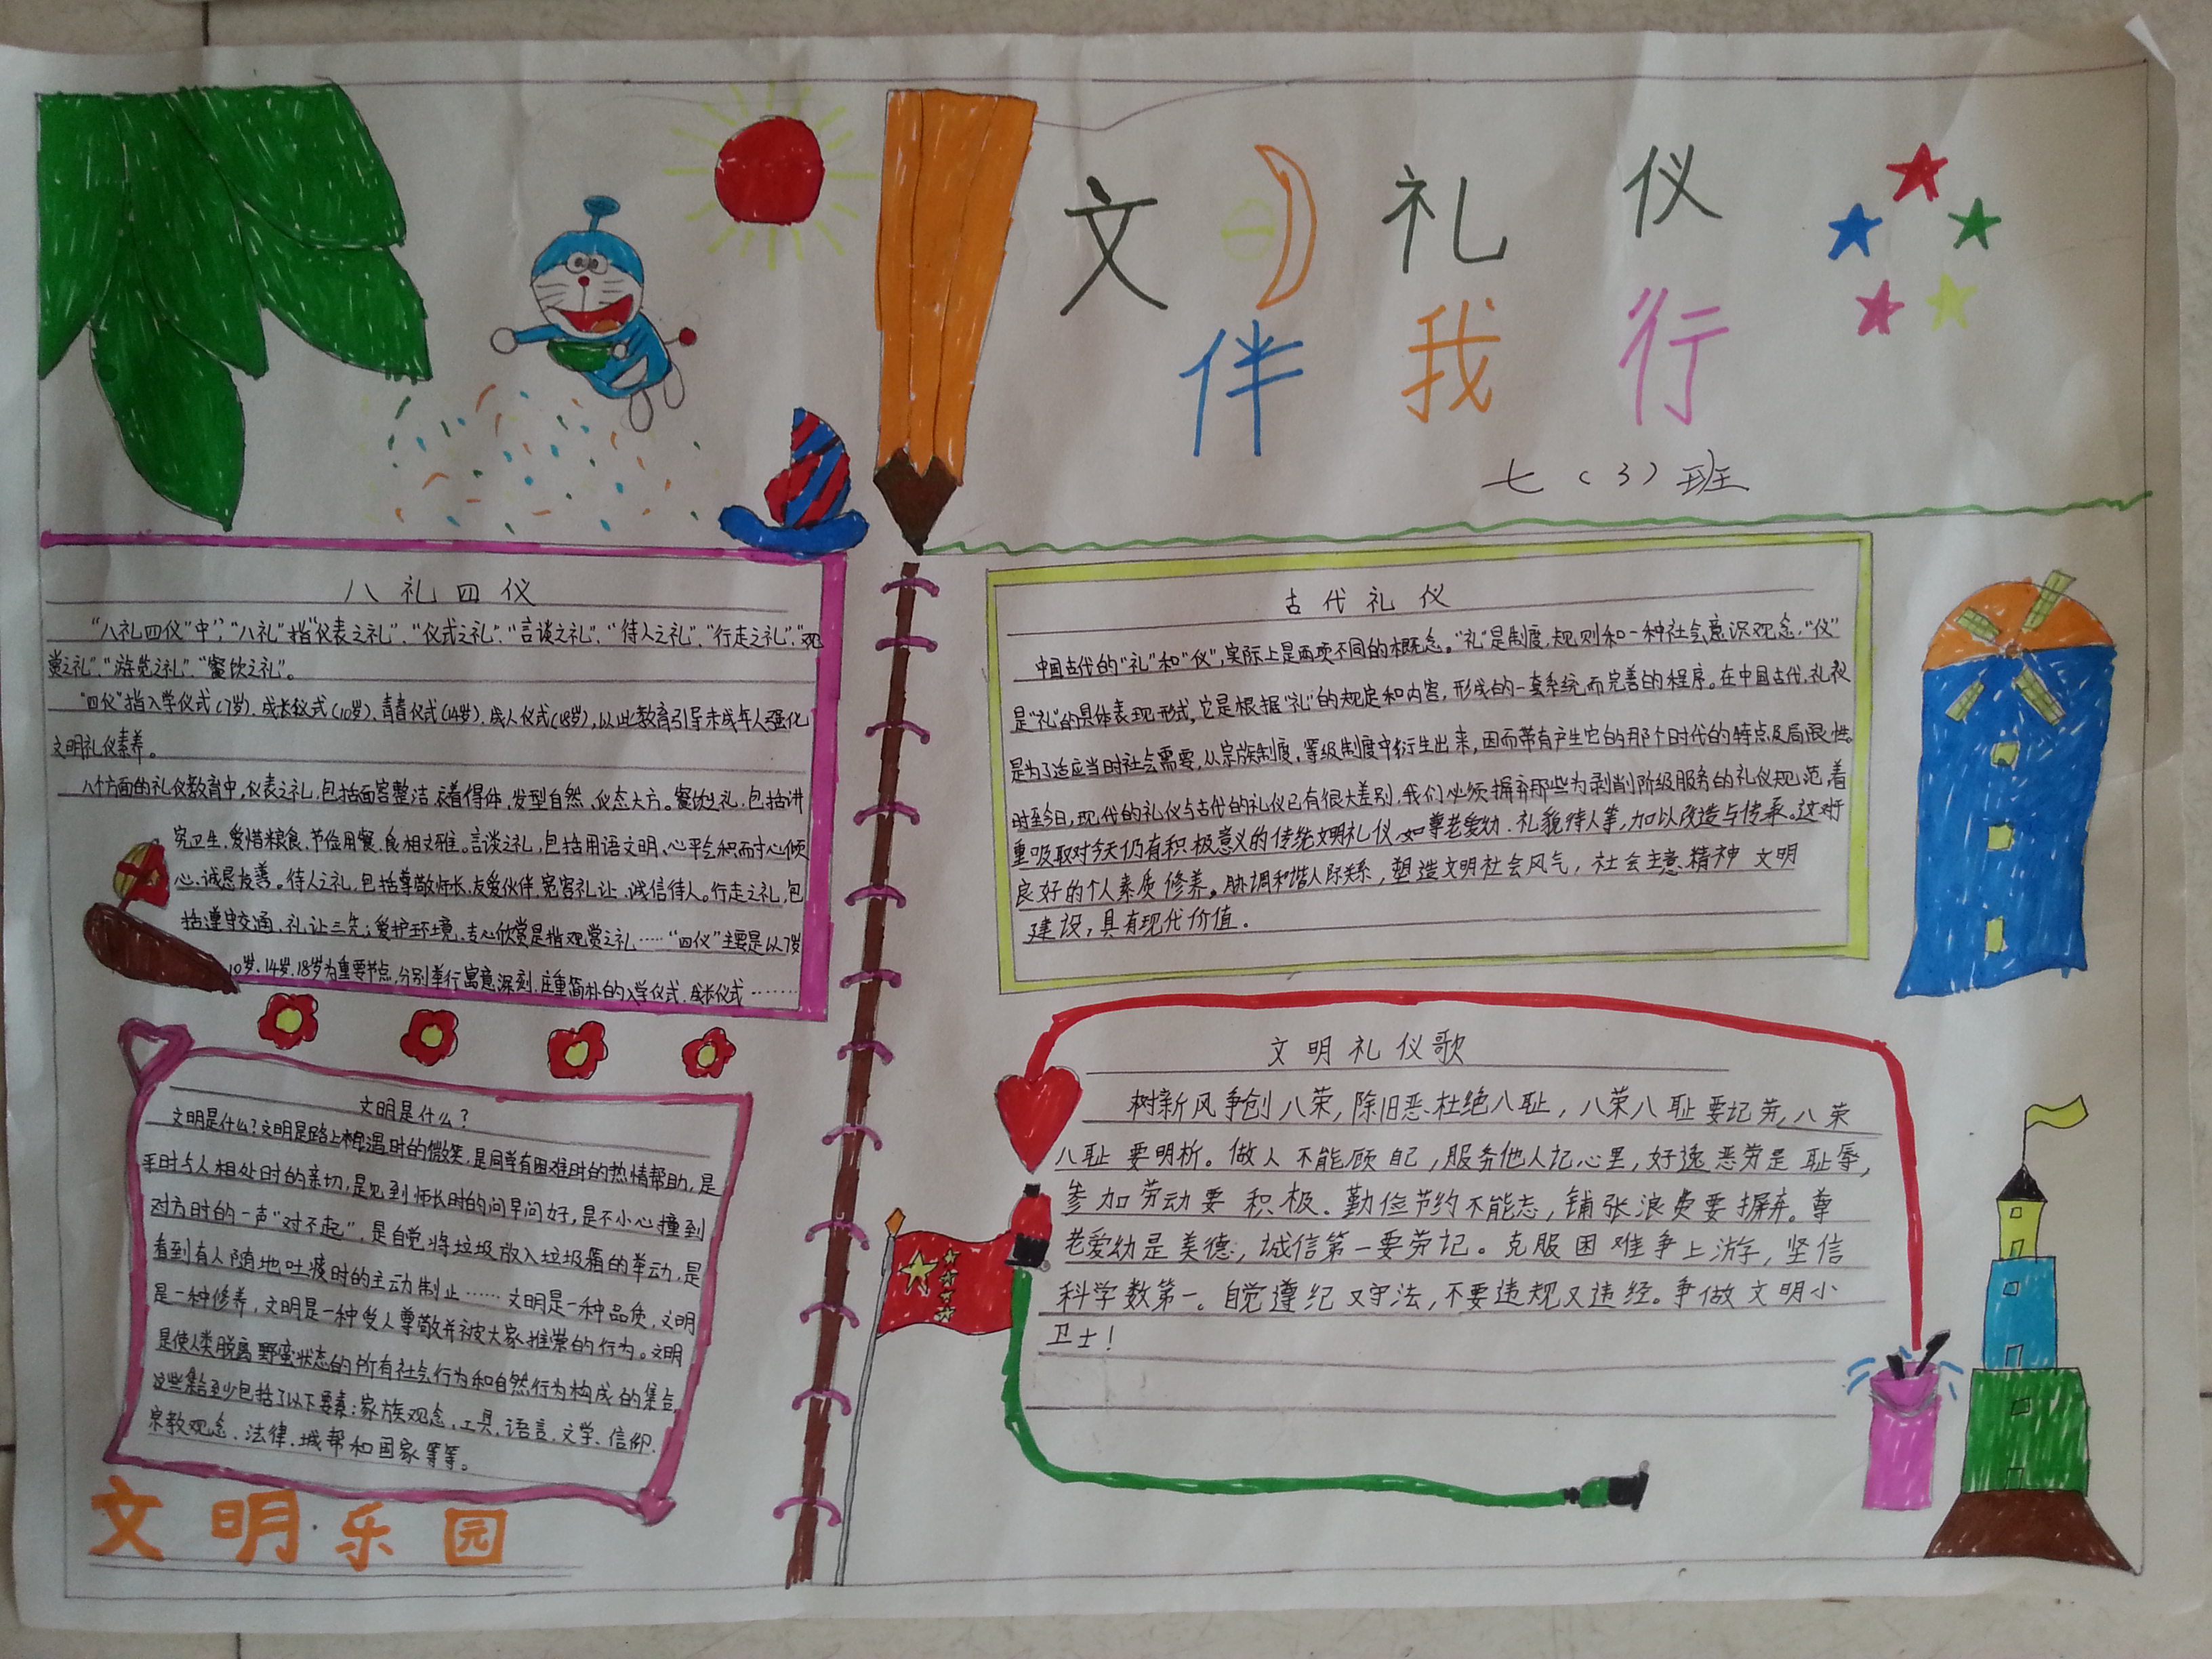 文明礼仪
伴我行
七（3）班
八礼四仪
“八礼四仪”中，“八礼”指“仪表之礼”、“仪式之礼”、“言谈之礼”、“待人之礼”、“行走之礼”、“观
赏之礼”、“游览之礼”、“餐饮之礼”。
“四仪”指入学仪式（7岁）、成长仪式（10岁）、青春仪式（14岁）、成人仪式（18岁），以此教育引导未成年人强化
文明礼仪素养。
八个方面的礼仪教育中，仪表之礼，包括面容整洁、衣着得体、发型自然、仪态大方。餐饮之礼，包括讲
究卫生、爱惜粮食、节俭用餐、食相文雅。言谈之礼，包括用语文明、心平气和、耐心倾
心、诚恳友善。待人之礼，包括尊敬师长、友爱伙伴、宽容礼让、诚信待人。行走之礼，包
括遵守交通、礼让三先；爱护环境、专心欣赏是指观赏之礼……“四仪”主要是以7岁
10岁、14岁、18岁为重要节点，分别举行寓意深刻、庄重简朴的入学仪式、成长仪式………
文明是什么？
文明是什么？文明是路上相遇时的微笑，是同学有困难时的热情帮助，是
平时与人相处时的亲切，是见到师长时的问早问好，是不小心撞到
对方时的一声“对不起”，是自觉将垃圾放入垃圾箱的举动，是
看到有人随地吐痰时的主动制止……文明是一种品质，文明
是一种修养，文明是一种受人尊敬并被大家推崇的行为。文明
是使人类脱离野蛮状态的所有社会行为和自然行为构成的集合，
这些集合至少包括了以下要素：家族观念、工具、语言、文学、信仰、
宗教观念、法律、城帮和国家等等。
文明乐园
古代礼仪
中国古代的“礼”和“仪”，实际上是两项不同的概念。“礼”是制度、规则和一种社会意识观念，“仪”
是“礼”的具体表现形式，它是根据“礼”的规定和内容，形成的一套系统而完善的程序。在中国古代，礼仪
是为了适应当时社会需要，从宗族制度、等级制度中衍生出来，因而带有产生它的那个时代的特点及局限性。
时至今日，现代的礼仪与古代的礼仪已有很大差别，我们必须摒弃那些为剥削阶级服务的礼仪规范，着
重吸取对今天仍有积极意义的传统文明礼仪，如尊老爱幼、礼貌待人等，加以改造与传承。这对
良好的个人素质修养。协调和谐人际关系，塑造文明社会风气，社会主意精神文明
建设，具有现代价值。
文明礼仪歌
树新风争创八荣，除旧恶杜绝八耻，八荣八耻要记劳，八荣
八耻要明析。做人不能顾自己，服务他人记心里，好逸恶劳是耻辱，
参加劳动要积极、勤俭节约不能忘，铺张浪费要摒弃。尊
老爱幼是美德，诚信第一要劳记。克服困难争上游，坚信
科学数第一。自觉遵纪又守法，不要违规又违经。争做文明小
卫士！